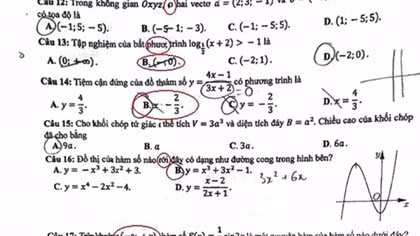 Câu 12: Trong không gian Oxyz, o hai vectơ a = (2; 3; -1) và
có tọa độ là
A. (-1; 5; -5). B. (-5; 1; -3). C. (-1; -5; 5). D. (1; -5; 5).
Câu 13: Tập nghiệm của bất phươ trình log (x + 2) > -1 là
A. (0; +∞). C. (-2; 1). D. (-2; 0).
Câu 14: Tiệm cận đứng của đồ thị hàm số y = 4x - 1 / 3x + 2 có phương trình là
= 0
A. y = 4/3. B. x = -2/3. C. y = -2/3. D. x = 4/3.
Câu 15: Cho khối chóp tứ giác thể tích V = 3a³ và diện tích đáy B = a². Chiều cao của khối chóp
đã cho bằng
A. 9a. B. a C. 3a. D. 6a.
Câu 16: Đồ thị của hàm số nào dưới đây có dạng như đường cong trong hình bên?
A. y = -x³ + 3x² + 3. B. y = x³ + 3x² - 1. 3x² + 6x
C. y = x⁴ - 2x² - 4. D. y = x - 2 / 2x + 1.
y
O
x
Câu 17: